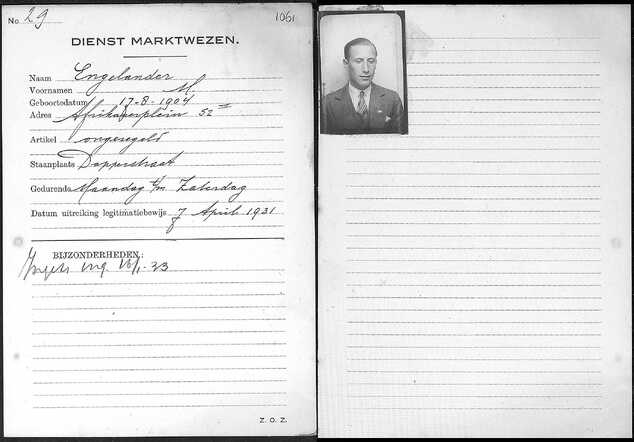 No 29 1061
DIENST MARKTWEZEN.
Naam Engelander
Voornamen M.
Geboortedatum 17-8-1904
Adres Afrikanerplein 52 II
Artikel ongeregeld
Staanplaats Dapperstraat
Gedurende Maandag t/m Zaterdag
Datum uitreiking legitimatiebewijs 7 April 1931
BIJZONDERHEDEN:
ing. 16/1-33
Z. O. Z.